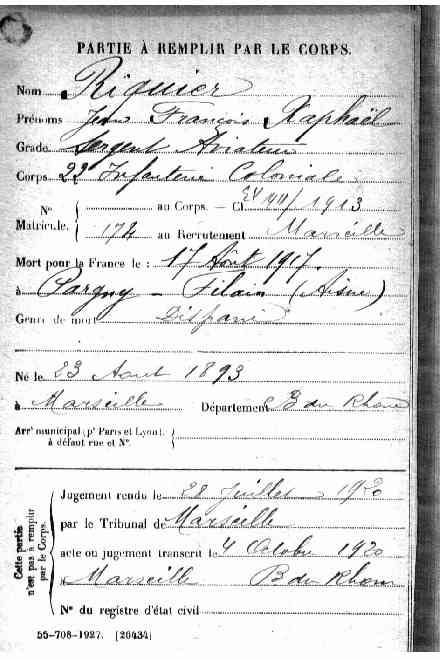 PARTIE À REMPLIR PAR LE CORPS.
Nom Riquier
Prénoms Jean François Raphaël
Grade Sergent Aviateur
Corps 22 Infanterie Coloniale
N° Matricule. { au Corps. — Cl. 1913
174 au Recrutement Marseille
Mort pour la France le : 17 Août 1917.
à Pargny – Filain (Aisne)
Genre de mort Disparu
Né le 23 Aout 1893
à Marseille Département B du Rhone
Arr' municipal (p' Paris et Lyon),
à défaut rue et N°.
Cette partie
n'est pas à remplir
par le Corps.
Jugement rendu le 28 Juillet 1920
par le Tribunal de Marseille
acte ou jugement transcrit le 4 Octobre 1920
à Marseille B du Rhone
N° du registre d'état civil
55-708-1927. [26434]